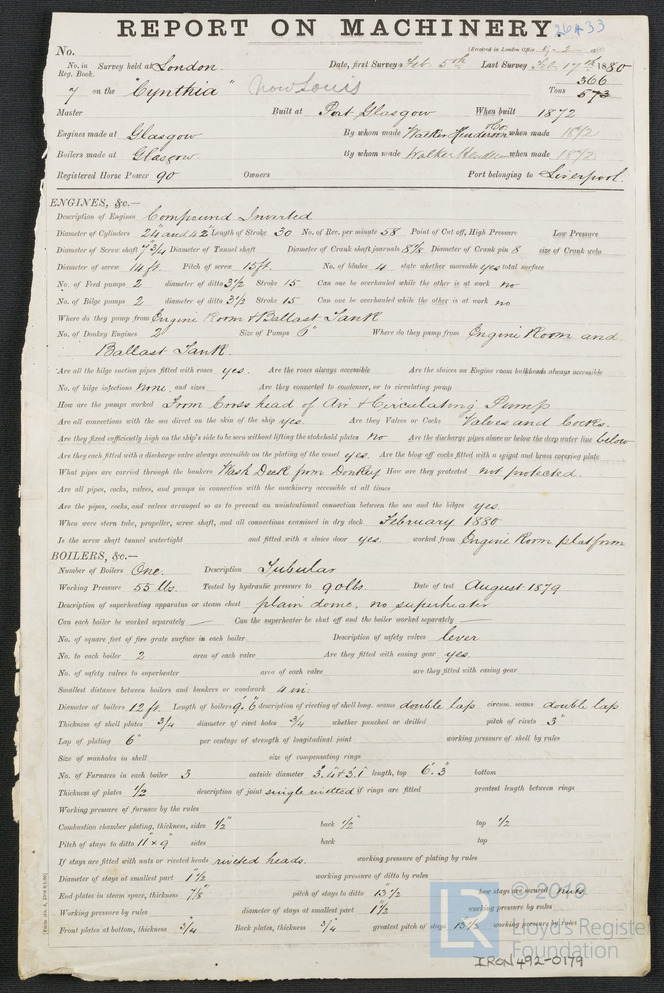 REPORT ON MACHINERY. 26433
No. (Received in London Office
No. in Reg. Book. Survey held at London. Date, first Survey Feb. 5th Last Survey Feb 17th 1880
7 on the "Cynthia" Now Louis Tons 366 573
Master Built at Port Glasgow When built 1872
Engines made at Glasgow By whom made Walker Henderson & Co when made 1872
Boilers made at Glasgow. By whom made Walker Henderson when made 1872
Registered Horse Power 90 Owners Port belonging to Liverpool.
ENGINES, &c.—
Description of Engines Compound Inverted
Diameter of Cylinders 24" and 42" Length of Stroke 30 No. of Rev. per minute 58 Point of Cut off, High Pressure Low Pressure
Diameter of Screw shaft 7 3/4 Diameter of Tunnel shaft Diameter of Crank shaft journals 8 1/8 Diameter of Crank pin 8 size of Crank webs
Diameter of screw 14 ft. Pitch of screw 15 ft. No. of blades 4 state whether moveable yes total surface
No. of Feed pumps 2 diameter of ditto 3 1/2 Stroke 15 Can one be overhauled while the other is at work no
No. of Bilge pumps 2 diameter of ditto 3 1/2 Stroke 15 Can one be overhauled while the other is at work no
Where do they pump from Engine Room & Ballast Tank
No. of Donkey Engines 2 Size of Pumps 6" Where do they pump from Engine Room and
Ballast Tank.
Are all the bilge suction pipes fitted with roses yes. Are the roses always accessible Are the sluices on Engine room bulkheads always accessible
No. of bilge injections none. and sizes Are they connected to condenser, or to circulating pump
How are the pumps worked From Cross head of Air & Circulating Pump
Are all connections with the sea direct on the skin of the ship yes. Are they Valves or Cocks Valves and Cocks.
Are they fixed sufficiently high on the ship's side to be seen without lifting the stokehold plates no Are the discharge pipes above or below the deep water line below
Are they each fitted with a discharge valve always accessible on the plating of the vessel yes. Are the blow off cocks fitted with a spigot and brass covering plate
What pipes are carried through the bunkers Wash Deck from Donkey How are they protected not protected.
Are all pipes, cocks, valves, and pumps in connection with the machinery accessible at all times
Are the pipes, cocks, and valves arranged so as to prevent an unintentional connection between the sea and the bilges yes.
When were stern tube, propeller, screw shaft, and all connections examined in dry dock February 1880
Is the screw shaft tunnel watertight and fitted with a sluice door yes. worked from Engine Room platform
BOILERS, &c.—
Number of Boilers One. Description Tubular
Working Pressure 55 lbs. Tested by hydraulic pressure to 90 lbs. Date of test August 1879
Description of superheating apparatus or steam chest plain dome, no superheater
Can each boiler be worked separately — Can the superheater be shut off and the boiler worked separately —
No. of square feet of fire grate surface in each boiler Description of safety valves lever
No. to each boiler 2 area of each valve Are they fitted with easing gear yes.
No. of safety valves to superheater area of each valve are they fitted with easing gear
Smallest distance between boilers and bunkers or woodwork 4 in:
Diameter of boilers 12 ft. Length of boilers 9'.6" description of riveting of shell long. seams double lap circum. seams double lap
Thickness of shell plates 3/4 diameter of rivet holes 3/4 whether punched or drilled pitch of rivets 3"
Lap of plating 6" per centage of strength of longitudinal joint working pressure of shell by rules
Size of manholes in shell size of compensating rings
No. of Furnaces in each boiler 3 outside diameter 3'.4" & 3'.1" length, top 6'.3" bottom
Thickness of plates 1/2 description of joint single rivetted if rings are fitted greatest length between rings
Working pressure of furnace by the rules
Combustion chamber plating, thickness, sides 1/2" back 1/2" top 1/2
Pitch of stays to ditto 11" x 9" sides back top
If stays are fitted with nuts or riveted heads riveted heads. working pressure of plating by rules
Diameter of stays at smallest part 1 1/2 working pressure of ditto by rules
End plates in steam space, thickness 7/8" pitch of stays to ditto 13 1/2 how stays are secured nuts
Working pressure by rules diameter of stays at smallest part 1 1/2 working pressure by rules
Front plates at bottom, thickness 3/4 Back plates, thickness 3/4 greatest pitch of stays 13 1/2 working pressure by rules
© 2019
LR Lloyd's Register
Foundation
IRON492-0179